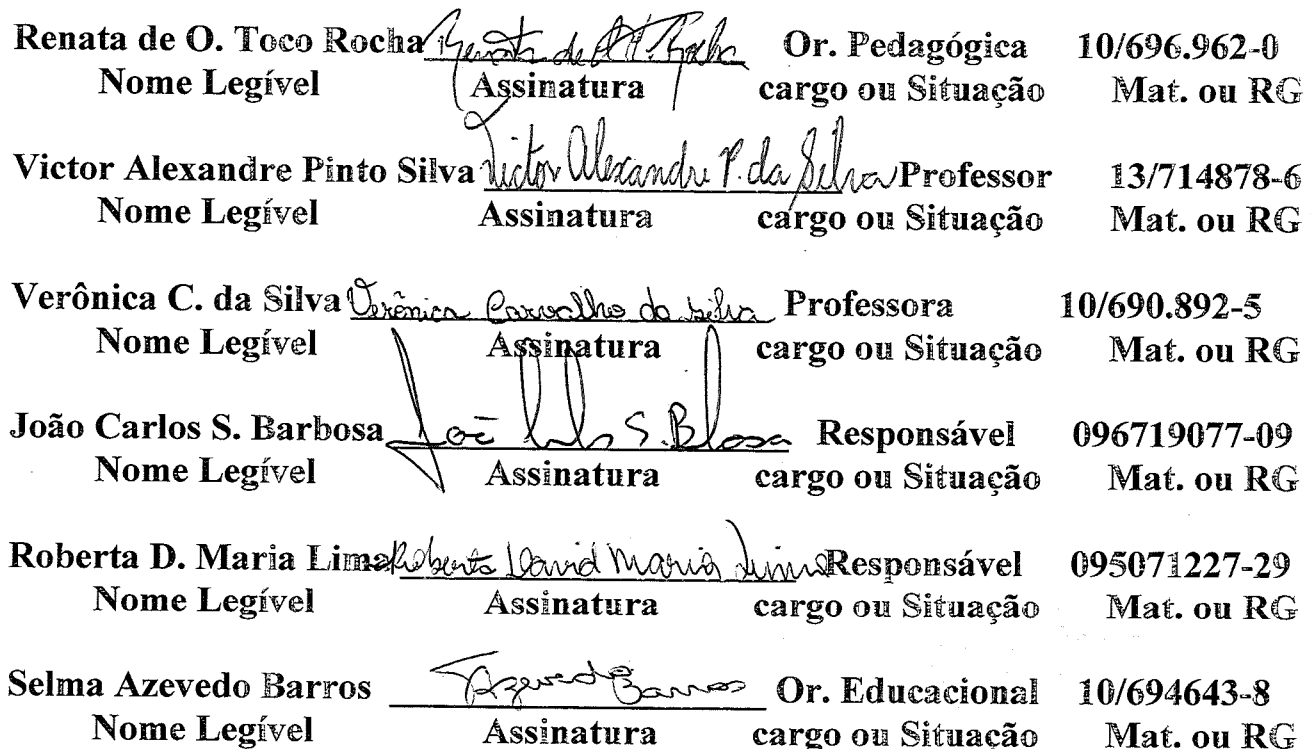 Renata de O. Toco Rocha Renata de O.T. Rocha Or. Pedagógica 10/696.962-0
Nome Legível Assinatura cargo ou Situação Mat. ou RG
Victor Alexandre Pinto Silva Victor Alexandre P. da Silva Professor 13/714878-6
Nome Legível Assinatura cargo ou Situação Mat. ou RG
Verônica C. da Silva Verônica Carvalho da Silva Professora 10/690.892-5
Nome Legível Assinatura cargo ou Situação Mat. ou RG
João Carlos S. Barbosa João S. Responsável 096719077-09
Nome Legível Assinatura cargo ou Situação Mat. ou RG
Roberta D. Maria Lima Roberta David Maria Lima Responsável 095071227-29
Nome Legível Assinatura cargo ou Situação Mat. ou RG
Selma Azevedo Barros Azevedo Barros Or. Educacional 10/694643-8
Nome Legível Assinatura cargo ou Situação Mat. ou RG